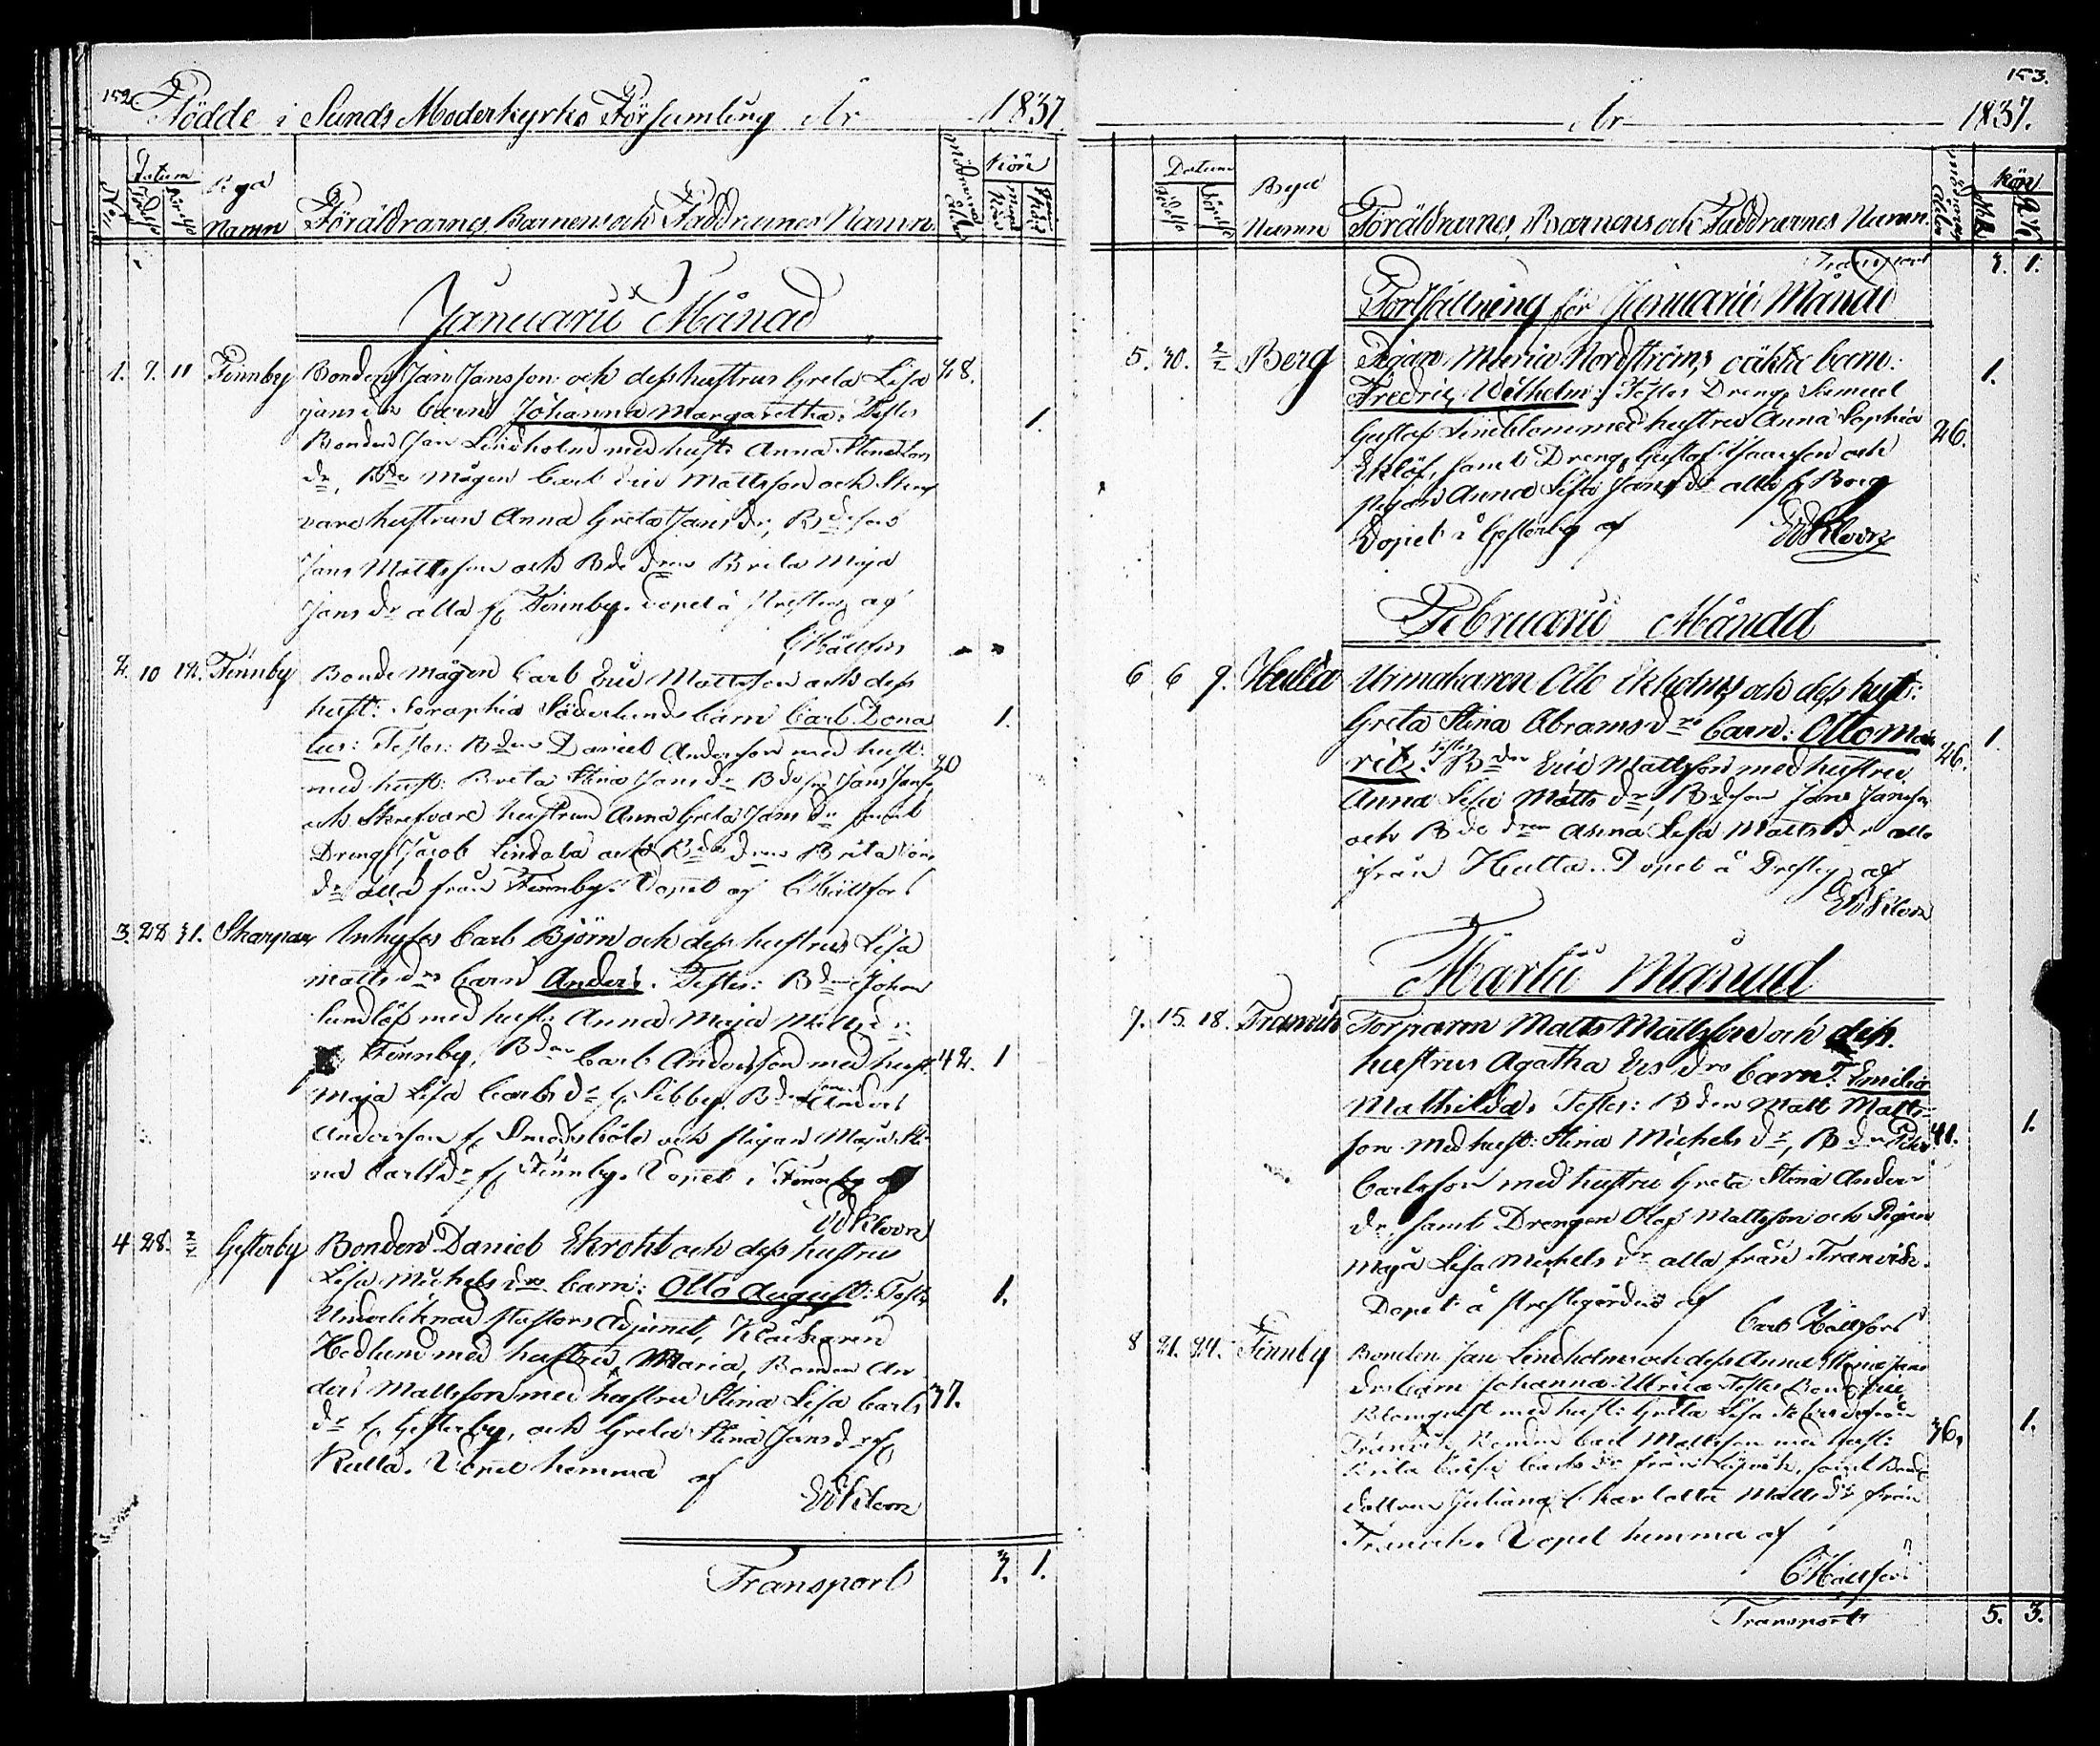 152
Födde i Sunds Moderkyrko Församling År 1837
No Datum Bya Namn Föräldrarnes, Barnens och Faddrarnes Namn Mödrarnas Ålder Kön
Januarii Månad
1. 7. 11 Finnby Bonden Jan Jansson och dess hustrus Greta Lisa 48.
Jans dr barn Johanna Margaretha. Testes 1.
Bonden Jan Lindholm med hust: Anna Stina Jans
dr, Bde mågen Carl Eric Mattsson och Skref
vare hustrun Anna Greta Jans dr, Bdeson
Jans Mattsson och Bde dren Brita Maja
Jans dr alla f Finnby. Döpet å Prestg af
CHällfors
2. 10 12. Finnby Bonde mågen Carl Eric Mattsson och dess
hust: Seraphia Söderlunds barn Carl Dona 1.
tus: Testes: Bden Daniel Andersson med hust: 20
med hust: Breta Stina Jans dr Bdeson Jans Jansson
och Skrefvare hustrun Anna Greta Jans dr samt
Dreng Jacob Lindala och Bde dren Brita
dr alla från Finnby. Döpet af CHällfors
3. 28 31. Skarpans Inhyses Carl Björn och dess hustrus Lisa
Matts drs barn Anders. Testes: Bden Johan
Lundlöf med hust: Anna Maja Matts dr
Finnby, Bden Carl Andersson med hust: 42. 1
Maja Lisa Carls dr f Sibby. Bde son Anders
Andersson f Smedsböle och pigan Maja Sti
na Carls dr f Finnby. Döpet i Finnby af
EWKlovn
4 28. Gesterby Bonden Daniel Ekroht och dess hustrus
Lisa Michels drs barn: Otto August: Testes 1.
Undertecknad Pastors Adjunct, Klockaren
Hedlund med hustru Maria, Bonden An
ders Mattsson med hustru Stina Lisa Carls 37.
dr f Gesterby, och Greta Stina Jans dr f
Kulla. Döpet hemma af
EWKlovn
Transport 3. 1.
153.
År 1837.
Datum Byd Namn Föräldrarnes, Barnens och Faddrarnes Namn Mödrarnas Ålder Kön
Transport 3. 1.
Fortsättning för Januarii Månad
5. 30. 2/2 Berg Pigan Maria Nordströms oäkta barn: 1.
Fredric Wilhelm: Testes Dreng Samuel
Gustaf Lindblom med hustru Anna Sophia 26.
Eklöf, samt Dreng Gustaf Jansson och
pigan Anna Lisa Jans dr alla f Berg
Döpet i Gesterby af EWKlovn
Februarii Månad
6 6 9. Hulta Urmakaren Otto Ekholms och dess hust:
Greta Stina Abrams drs barn: Otto Mau 1.
ritz. Testes Bden Eric Mattsson med hustru 26.
Anna Lisa Matts dr, Bdeson Jans Jansson
och Bde dren Anna Lisa Matts dr alla
ifrån Hulta. Döpet å Prestg af
EWKlovn
Martii Månad
7. 15. 18. Tranvik Torparen Matts Mattsson och dess
hustrus Agatha Ers drs barn: Emilia
Mathilda. Testes: Bden Matt Matts 1.
son med hust: Stina Michels dr, Bden Petter 41.
Carlsson med hustru Greta Stina Anders
dr, samt Drengen Olof Mattsson och Pigan
Maja Lisa Michels dr alla från Tranvik.
Döpet å Prestegården af
Carl Hällfors
8 21. 24. Finnby Bonden Jan Lindholms och dess Anna Stina Jans
drs barn Johanna Ulrica Testes Bond Eric
Blomqvist med hust: Greta Lisa från 1.
Tranvik, Bonden Carl Mattsson med hust: 36.
Brita Caisa Carls dr från , samt Bonde
dottren Juliana Charlotta Matts dr från
Tranvik. Döpet hemma af
CHällfors
Transport 5. 3.